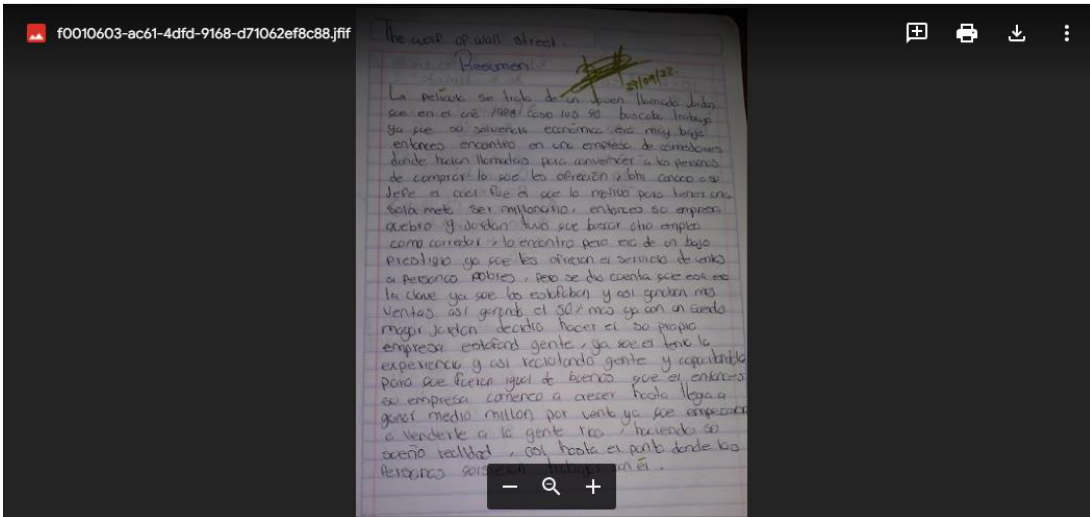 f0010603-ac61-4dfd-9168-d71062ef8c88.jfif
The of wall street.
Resumen
27/09/22.
La pelicula se trata de un joven llamado
que en el 1988/ los 90 buscaba trabajo
ya que su solvencia económica era muy baja
entonces encontro en una empresa de corredores
donde hacian llamadas para convencer a las personas
de comprar lo que les ofrecian, ahi conoce a su
Jefe el cual fue el que lo motivo para tener una
sola meta ser millonario, entonces su empresa
quebro y Jordan tuvo que buscar otro empleo
como corredor, lo encontro pero era de un bajo
Prestigio ya que les ofrecian el servicio de ventas
a Personas pobres, Pero se dio cuenta que esa era
la clave ya que los estafaban y asi ganaban mas
ventas asi ganando el 50% mas ya con un sueldo
mayor Jordan decidio hacer el su propia
empresa estafand gente, ya que el tenia la
experiencia y asi reclutando gente y
para que fueran igual de buenos que el entonces
su empresa comenco a crecer hasta llega a
ganar medio millon por venta ya que
a venderle a la gente rica, haciendo su
sueño realidad, asi hasta el punto donde las
Personas en él.